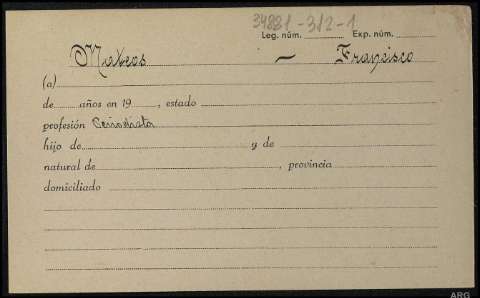 34881-312-1
Leg. núm. Exp. núm.
Mateos — Francisco
(a)
de años en 19 , estado
profesión Periodista
hijo de y de
natural de , provincia
domiciliado
ARG